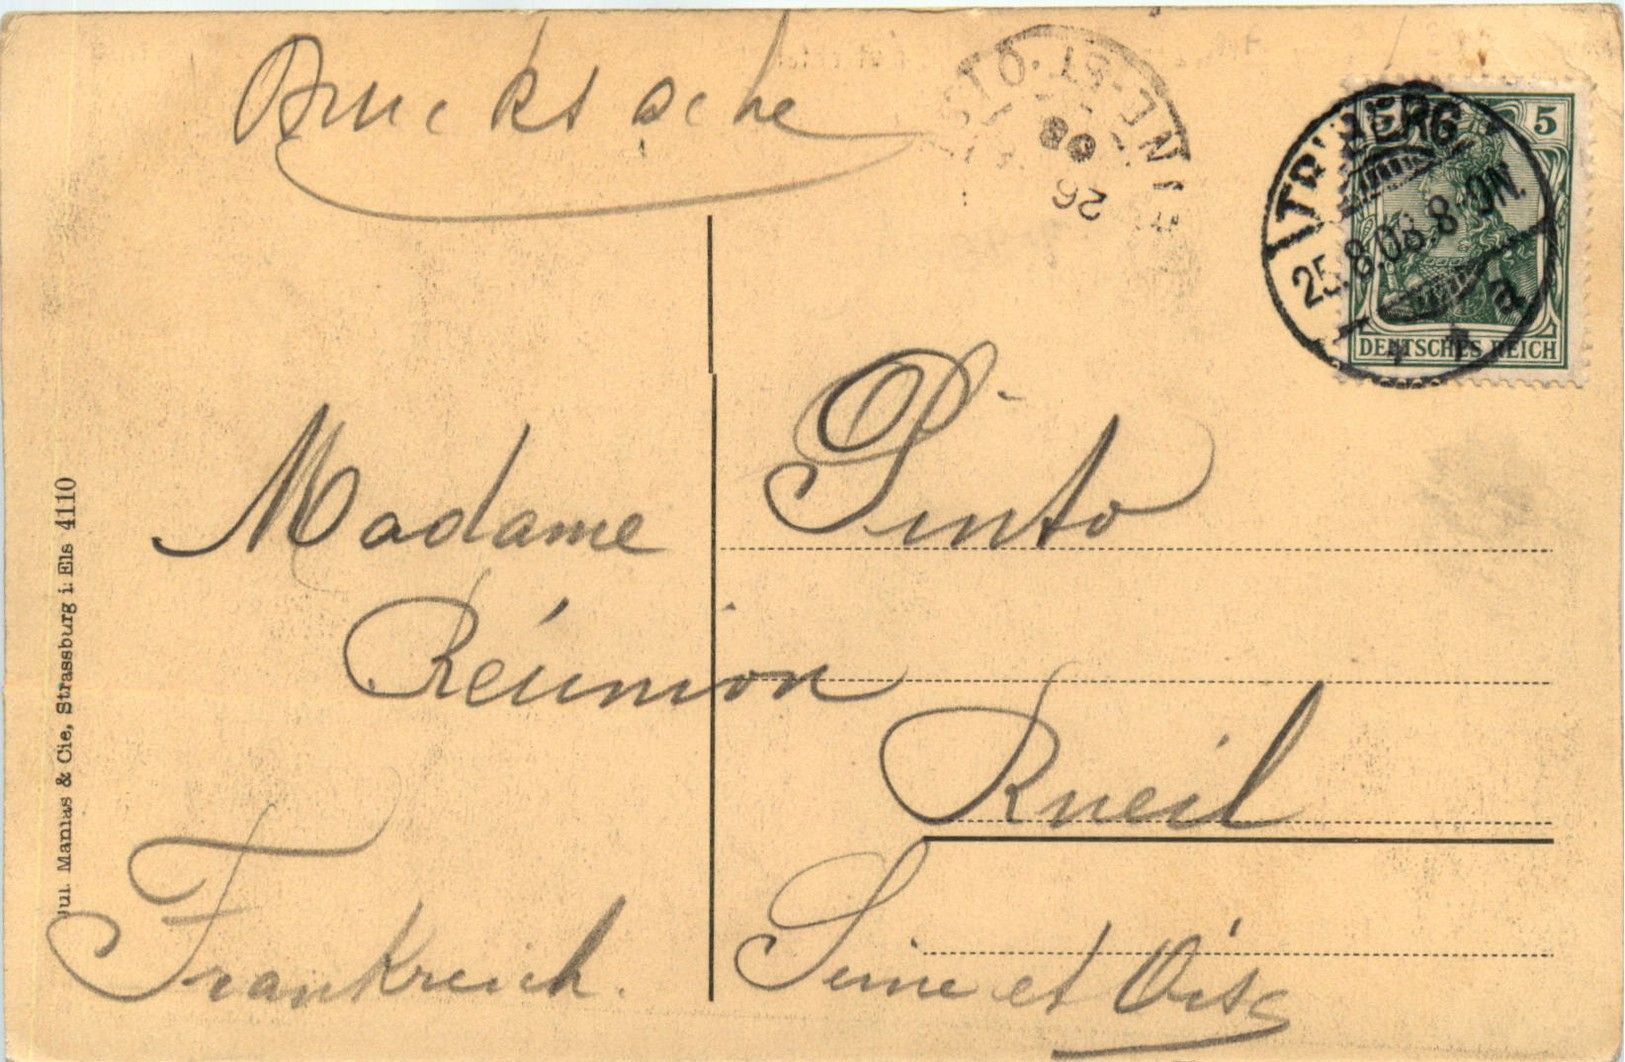 Drucksache
5
TRIBERG
25.8.08.8-9N.
DEUTSCHES REICH
26
08
Madame Pinto
Réunion
Rueil
Seine et Oise
Frankreich.
Jul. Manias & Cie, Strassburg i. Els 4110